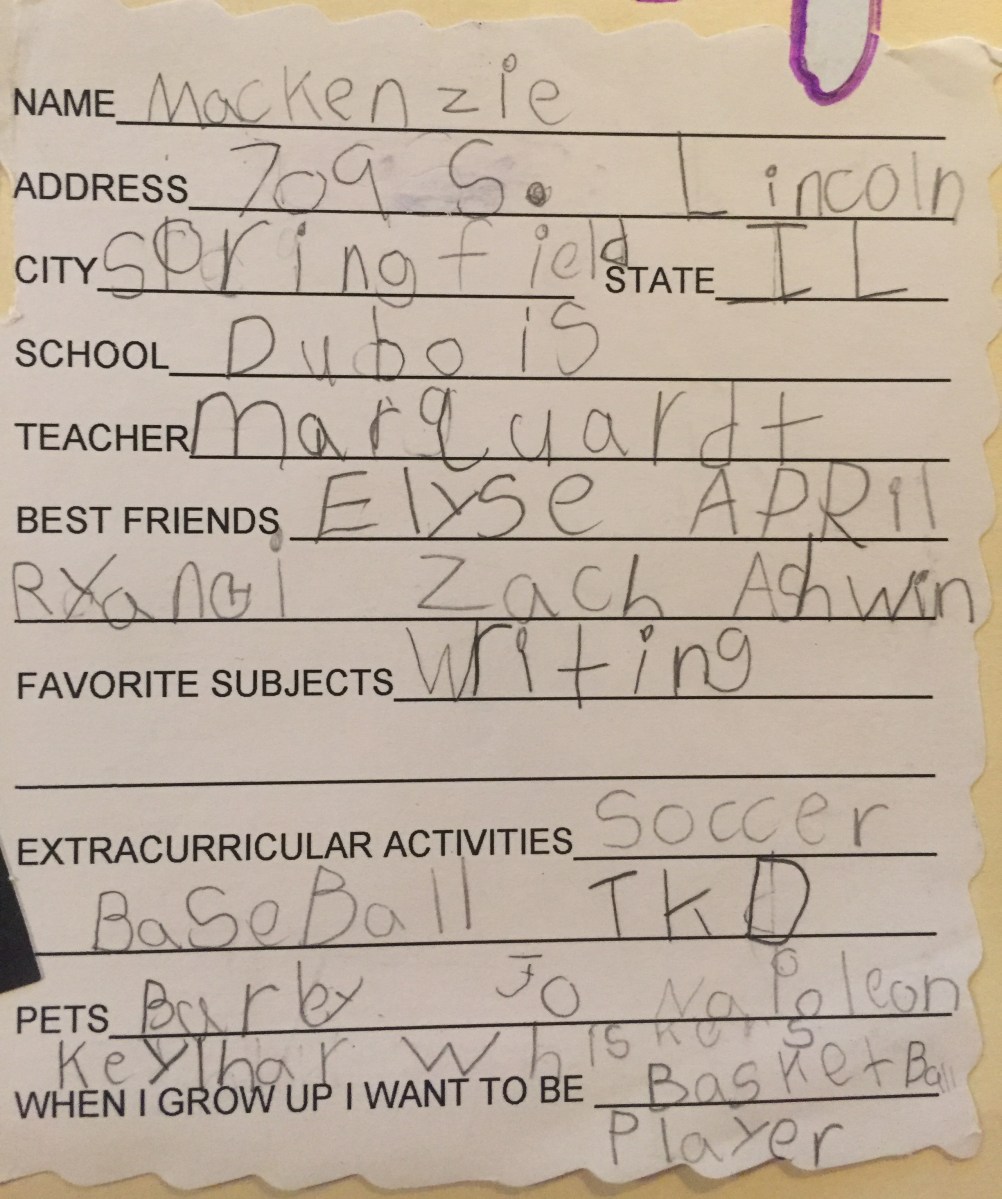 NAME Mackenzie
ADDRESS 709 S. Lincoln
CITY Springfield STATE IL
SCHOOL Dubois
TEACHER Marquardt
BEST FRIENDS Elyse APRil
Zach Ashwin
FAVORITE SUBJECTS Writing
EXTRACURRICULAR ACTIVITIES Soccer
BaSeBall TKD
PETS Jo NaPoleon
Whiskers
WHEN I GROW UP I WANT TO BE BasketBall
Player